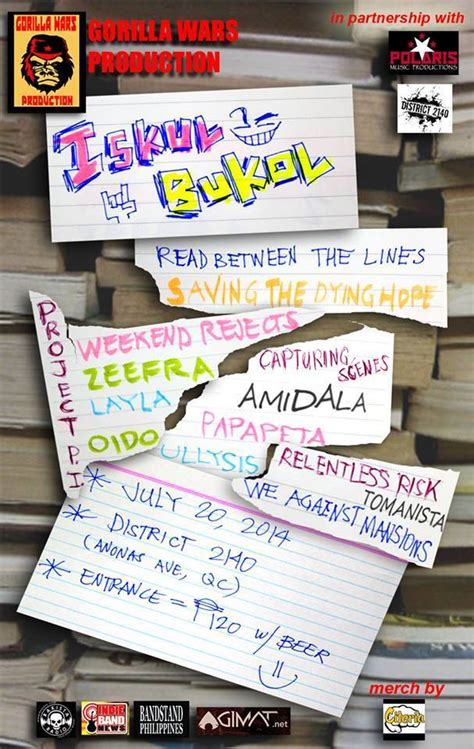 GORILLA WARS
PRODUCTION
GORILLA WARS
PRODUCTION
in partnership with
POLARIS
MUSIC PRODUCTIONS
DISTRICT 2140
ISKUL
BUKOL
READ BETWEEN THE LINES
SAVING THE DYING HOPE
PROJECT P.I
WEEKEND REJECTS
ZEEFRA
LAYLA
OIDO
CAPTURING
SCENES
AMIDALA
PAPAPETA
ULLYSIS
RELENTLESS RISK
TOMANISTA
WE AGAINST MANSIONS
* JULY 20, 2014
* DISTRICT 2140
(ANONAS AVE, QC)
* ENTRANCE = ₱120 w/ BEER
merch by
RADIO
INDIE
BAND
NEWS
BANDSTAND
PHILIPPINES
AGIMAT.net